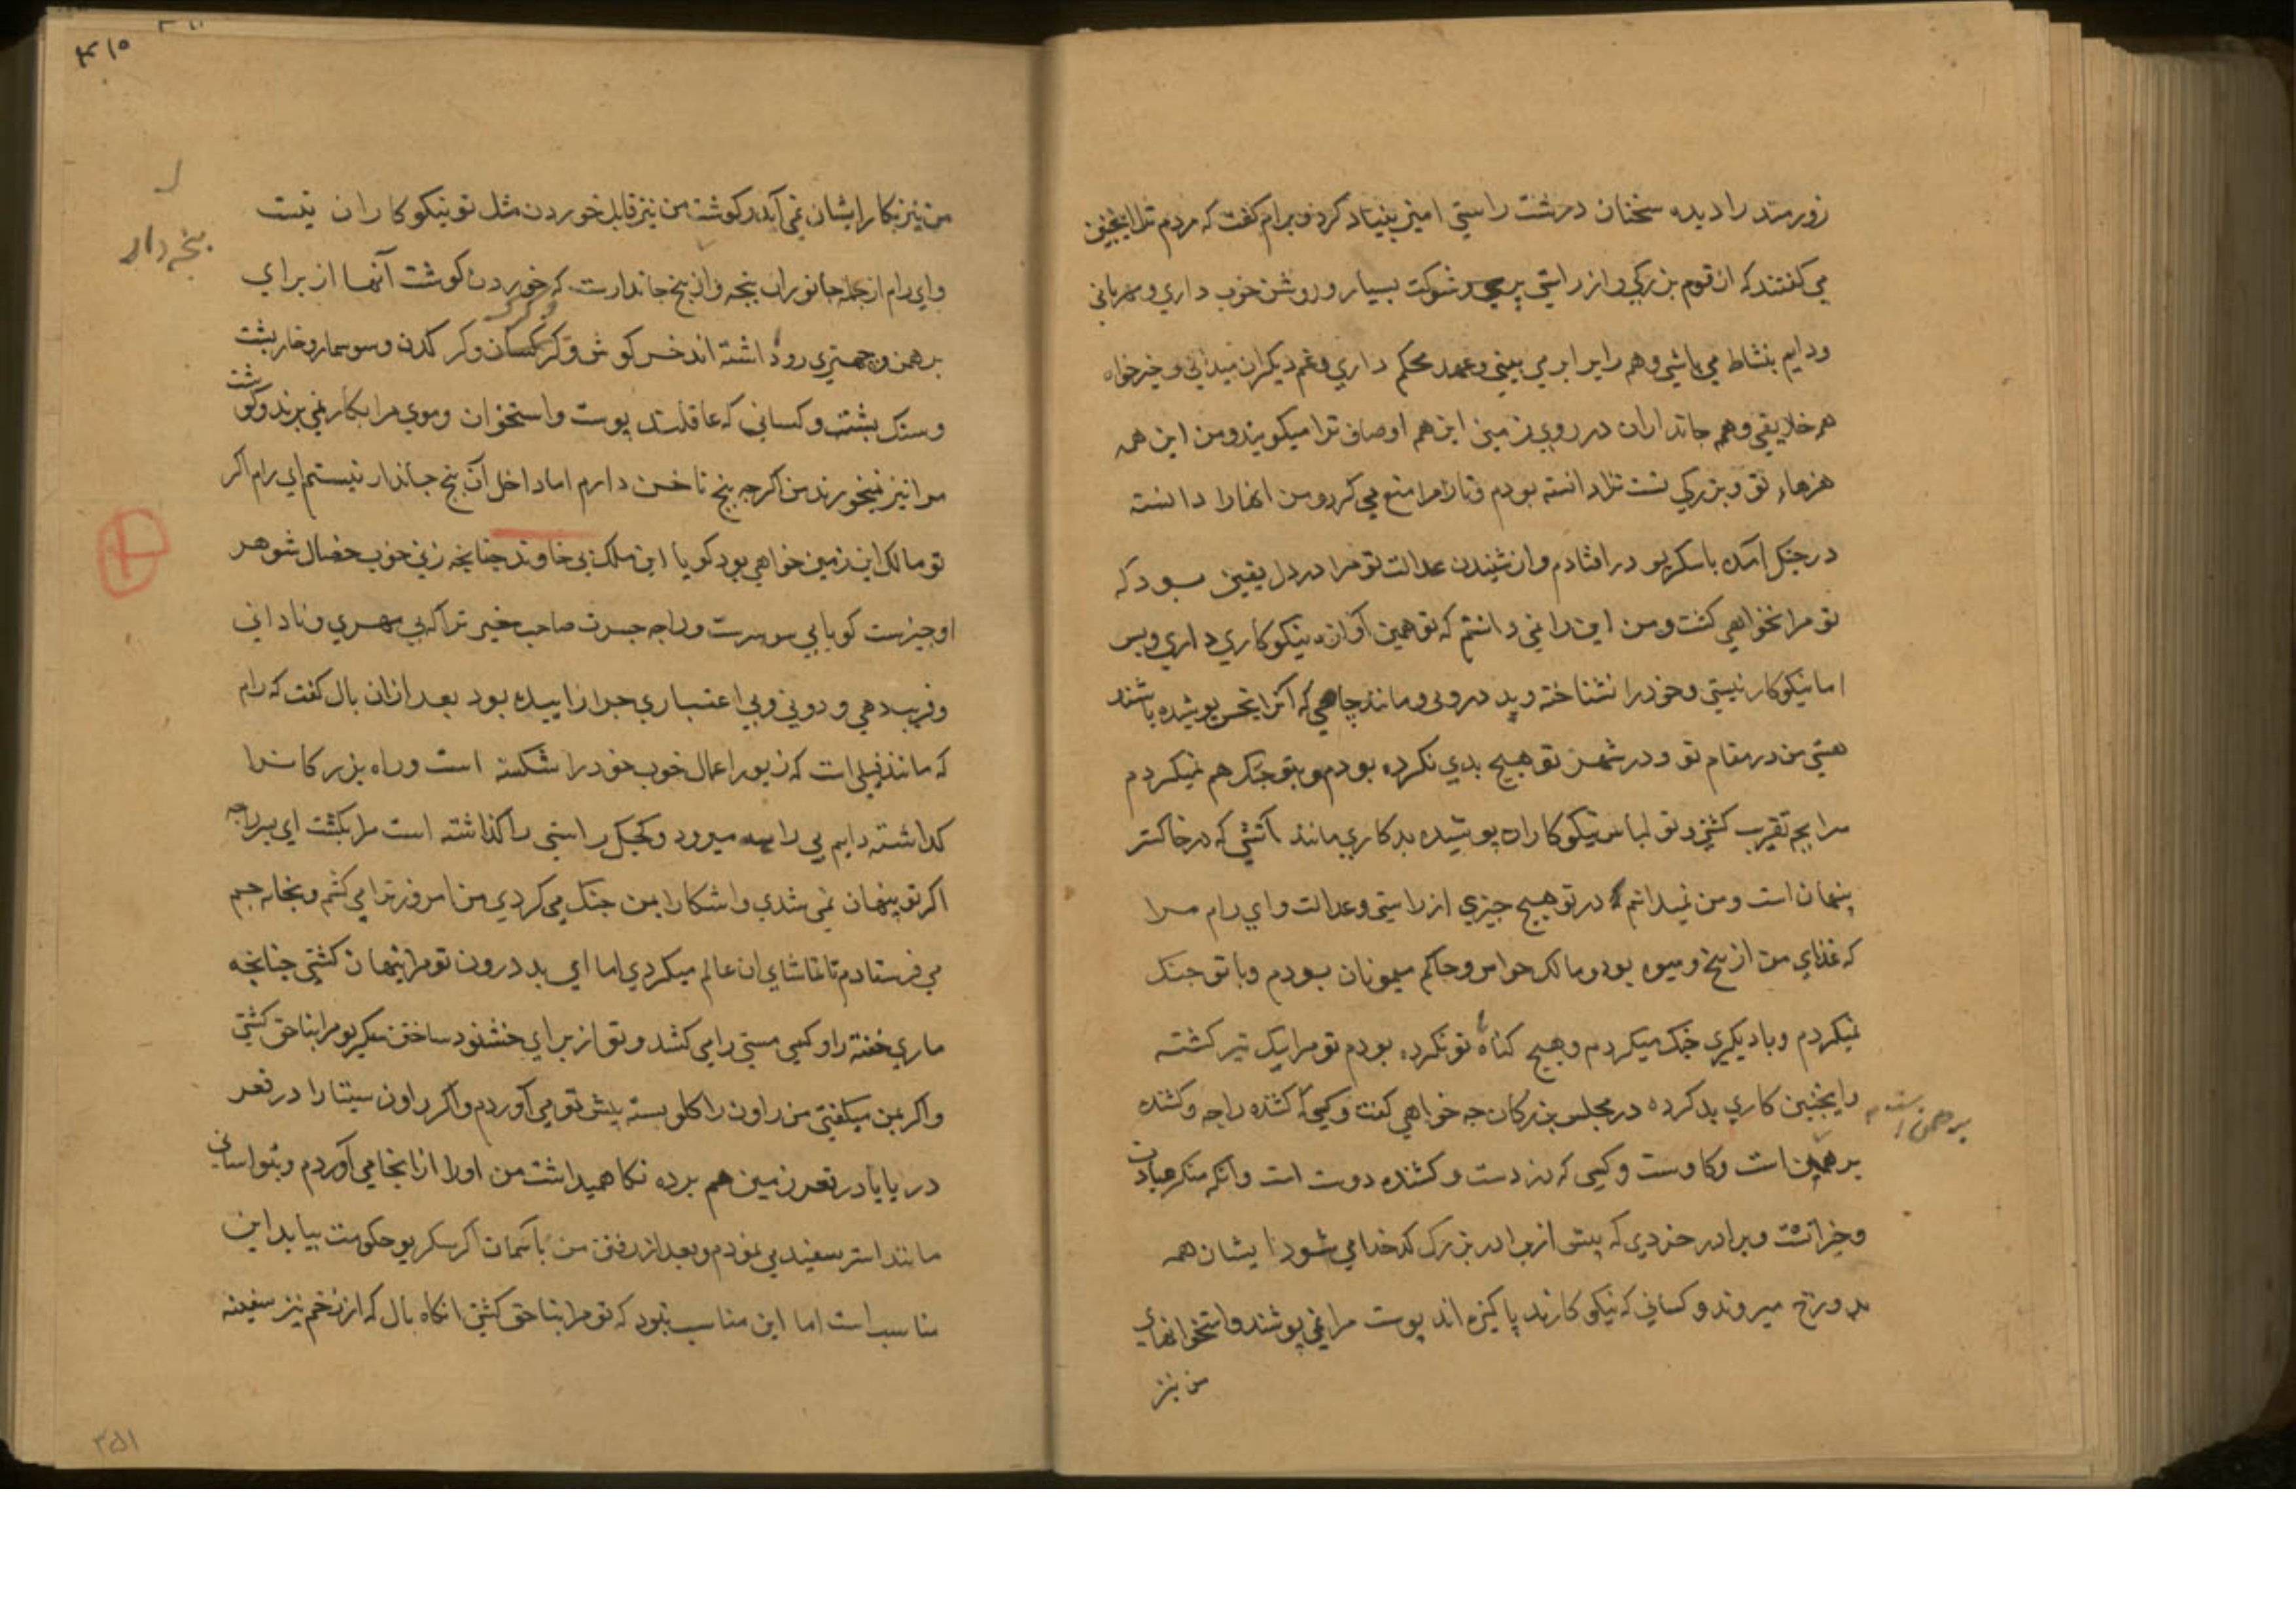 زورمند را دیده سخنان درشت راستی امیز بنیاد کرد و برام گفت که مردم ترا اینچنین
می کفتند که از قوم بزرکی و از راستی پری و شوکت بسیار و روشن خوب داری و مهربانی
و دایم بنشاط می باشی و هم را برابر می بینی و عهد محکم داری و غم دیکران میدانی و خیرخواه
هم خلایقی و هم جانداران در روی زمین این هم اوصاف ترا میکویند و من این همه
هنرهاء تو و بزرکی ترا دانسته بودم و تارا مرا منع می کرد و من انها را دانسته
در جنکل آمده باسکریو در افتادم و از شنیدن عدالت تو مرا در دل یقین بود که
تو مرا نخواهی کشت و من این را نمی دانستم که تو همین آوازه نیکوکاری داری و بس
اما نیکوکار نیستی و خود را نشناخته و بد درونی و مانند چاهی که آنرا بخس پوشیده باشند
هستی من در مقام تو و در شهر تو هیچ بدی نکرده بودم و بتو جنک هم نمیکردم
مرا بچه تقریب کشتی و تو لباس نیکوکاران پوشیده بدکاری مانند آتشی که در خاکستر
پنهان است و من نمیدانم که در تو هیچ چیزی از راستی و عدالت و ای رام مرا
که غذای من از بیخ و میوه بود و مالک حواس و حاکم میمونان بودم و با تو جنک
نمیکردم و با دیکری جنک میکردم و هیچ کناه تو نکرده بودم تو مرا بیک تیر کشته
و اینچنین کاری بد کرده در مجلس بزرکان چه خواهی کفت و کسی که کشنده راجه و کشنده
برهمن است
برهمن است و کاوست و کسی که دزدست و کشنده دوست است و آنکه منکر عبادت
و خیراتست و برادر خردی که پیش از برادر بزرک کدخدا می شود ایشان همه
بدوزخ میروند و کسانی که نیکوکارند پاکیزه اند پوست مرا نمی پوشند و استخوانهای
من نیز
۴۱۵
من نیز بکار ایشان نمی آید و کوشت من نیز قابل خوردن مثل تو نیکوکاران نیست
و ای رام از جمله جانوران پنجه دار پنج جاندارست که خوردن کوشت آنها از برای
پنجه دار
برهمن و چهتری روا داشته اند خرکوش و کرکدن و سوسمار و خارپشت
و سنک پشت و کسانی که عاقلند پوست و استخوان و موی مرا بکار نمی برند و کوشت
مرا نیز نمیخورند من اکرچه پنج ناخن دارم اما داخل آن پنج جاندار نیستم ای رام اکر
تو مالک این زمین خواهی بود کویا این ملک بی خاوند چنانچه زنی خوب خصال شوهر
او چیزست کویا بی سرست و راجه جسرت صاحب خیر ترا که بی مهری و نادانی
و فریب دهی و دونی و بی اعتباری چرا زاییده بود بعد ازان بال کفت که رام
که مانند فیلی است که زیور اعمال خوب خود را شکسته است و راه بزرکان را
کذاشته دایم بی راهه میرود و کجک راستی را کذاشته است مرا بکشت ای پسر راجه
اکر تو پنهان نمی شدی و اشکارا بمن جنک می کردی من امروز ترا می کشتم و بخانه جم
می فرستادم تا تماشای ان عالم میکردی اما ای بد درون تو مرا پنهان کشتی چنانچه
ماری خفته را و کسی مستی را می کشد و تو از برای خشنود ساختن سکریو مرا بناحق کشتی
و اکر بمن میکفتی من راون را کلو بسته پیش تو می آوردم و اکر راون سیتا را در قعر
دریا یا در قعر زمین هم برده نکاه میداشت من او را از انجا می آوردم و بتو اسانی
مانند استر سفید می نمودم و بعد از رفتن من باسمان اکر سکریو حکومت بیابد این
مناسب است اما این مناسب نبود که تو مرا بناحق کشتی انکاه بال که از زخم تیز سفینه
۳۵۱